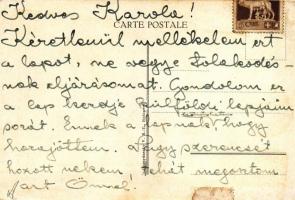 Kedves Karola!
CARTE POSTALE
Kéretlenül mellékelem ezt
a lapot, ne vegye tolakodás-
nak eljárásomat. Gondolom ez
a lap kezdje külföldi lapjaim
sorát. Ennek a lapnak hogy
hozzájöttem. Nagy szerencsét
hozott nekem, tehát megosztom
Mart Önnel!